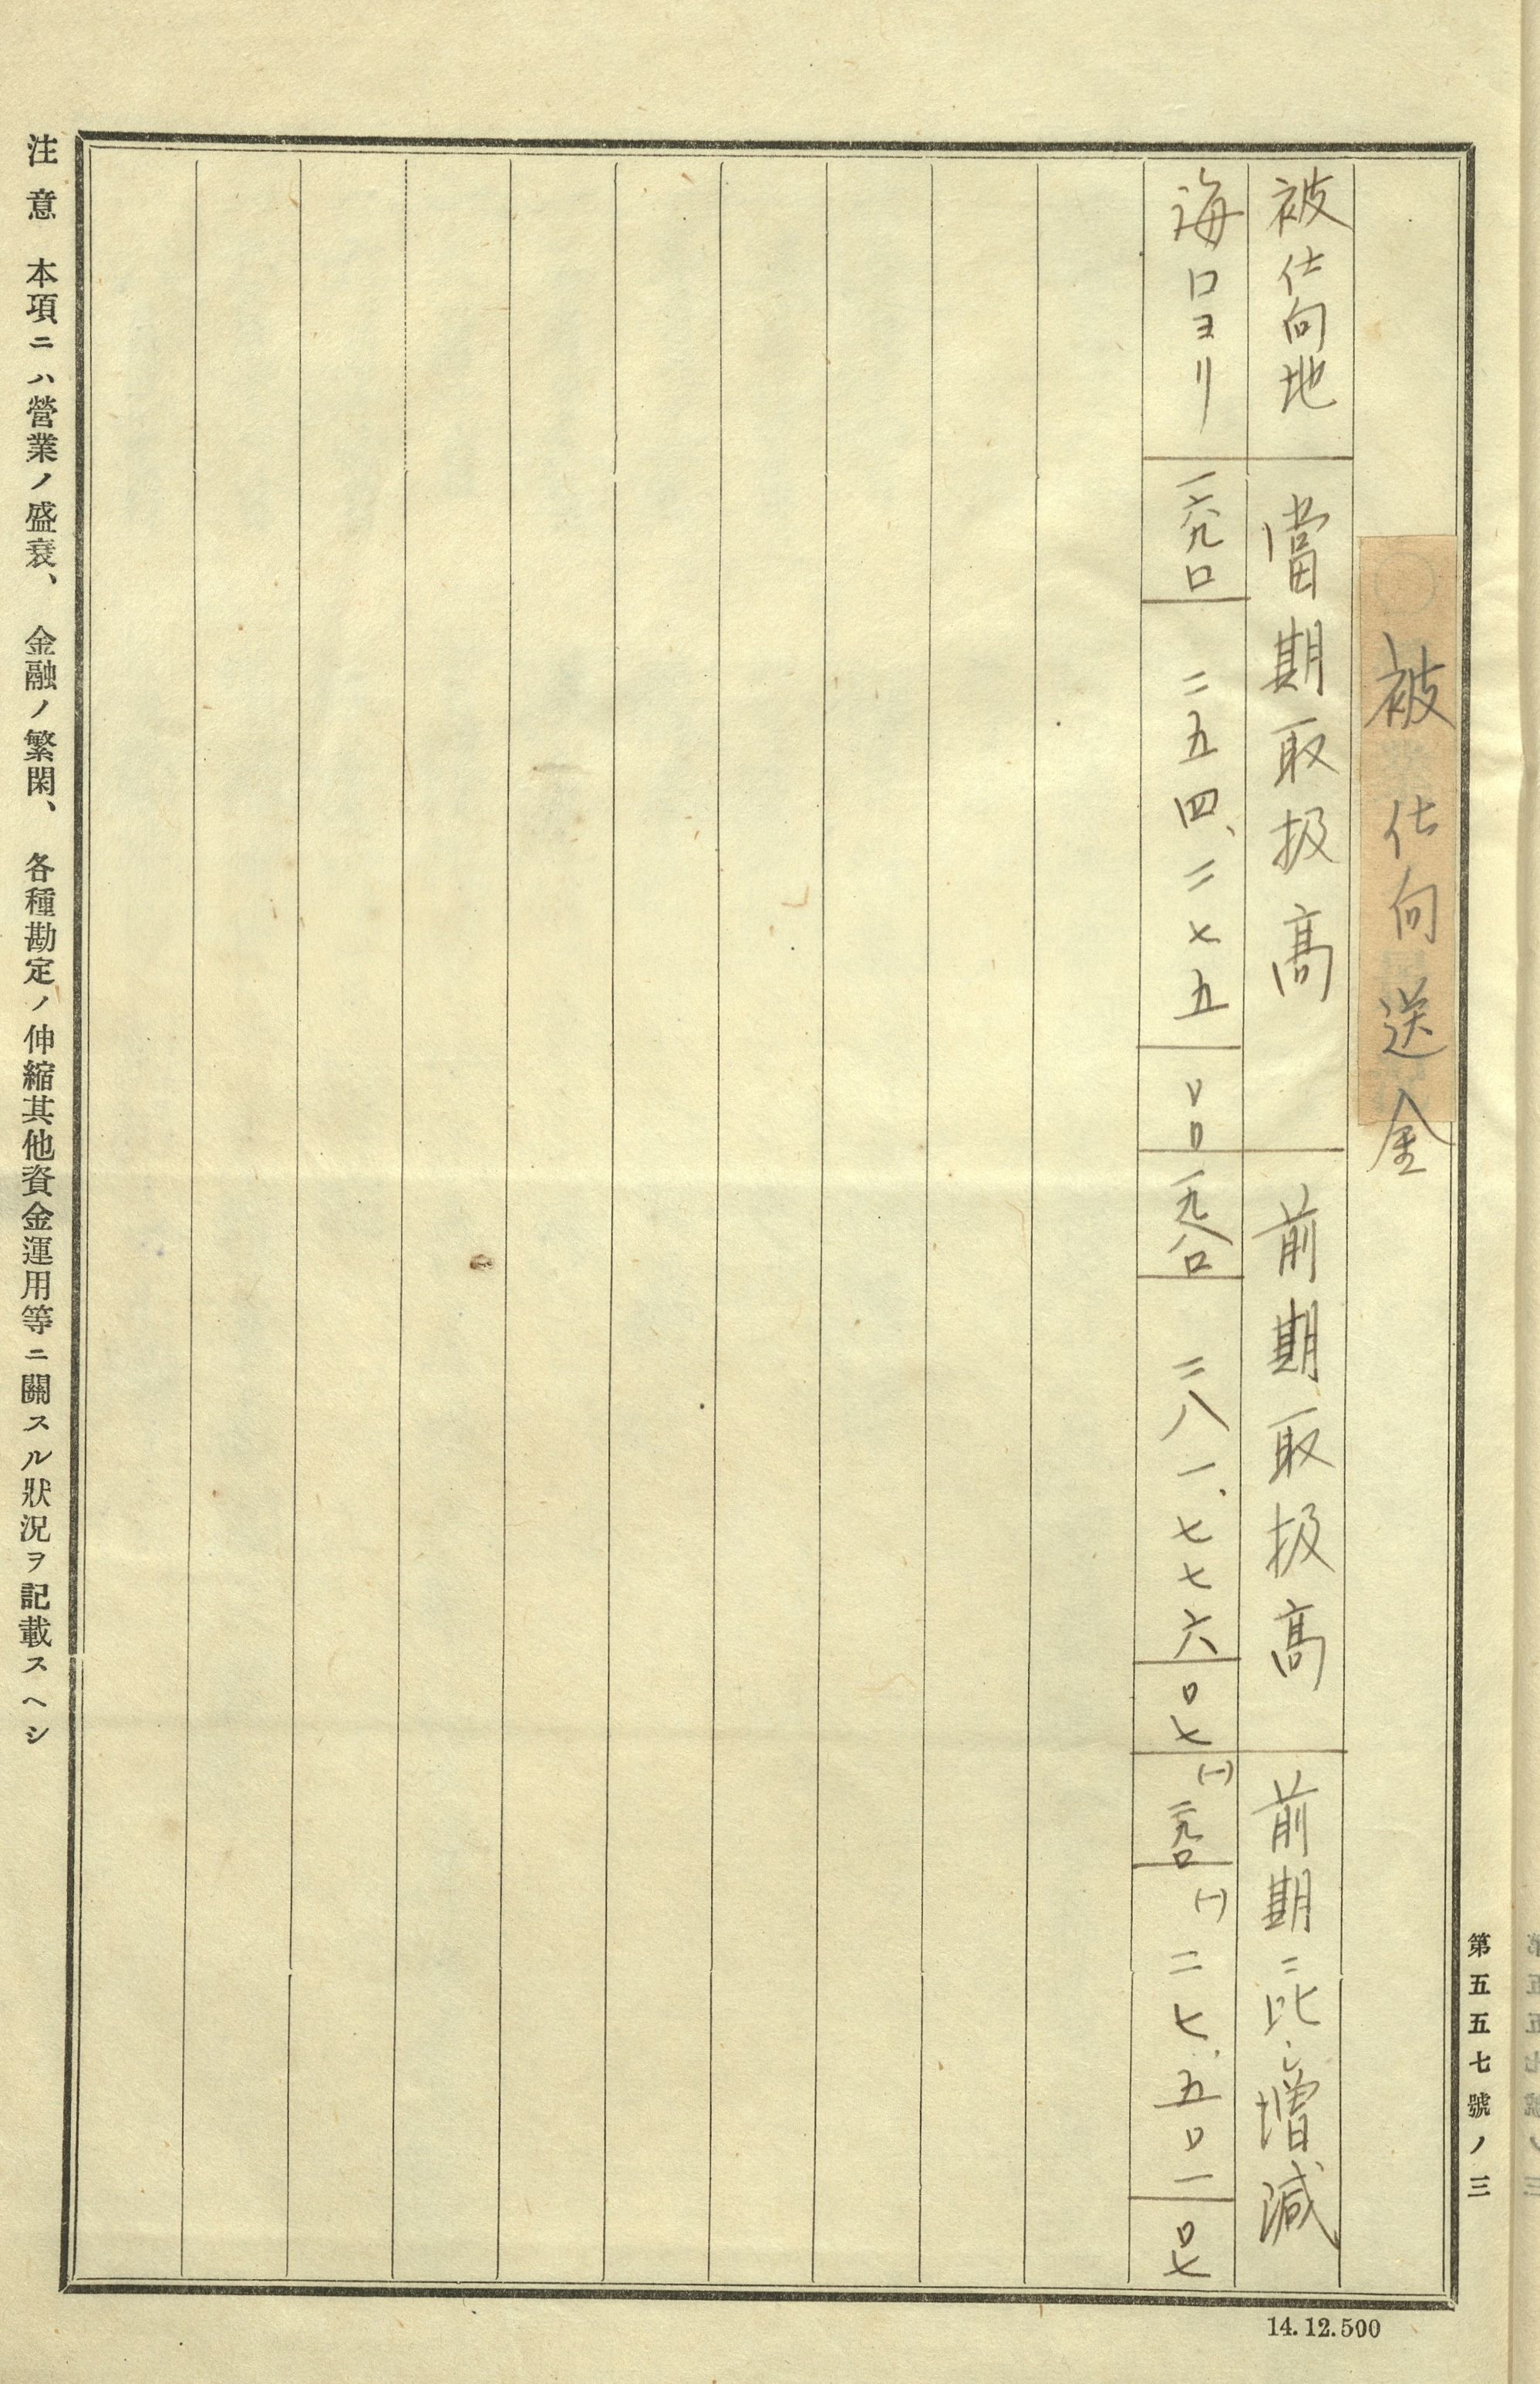 第五五七號ノ三
被仕向送金
被仕向地　當期取扱高　前期取扱高　前期ニ比シ増減
海口ヨリ　一六九口　二五四、二七五　〇〇　一九八口　二八一、七七六　〇七　(一)二九口　(一)二七、五〇一　〇七
注意　本項ニハ營業ノ盛衰、金融ノ繁閑、各種勘定ノ伸縮其他資金運用等ニ關スル狀況ヲ記載スヘシ
14.12.500